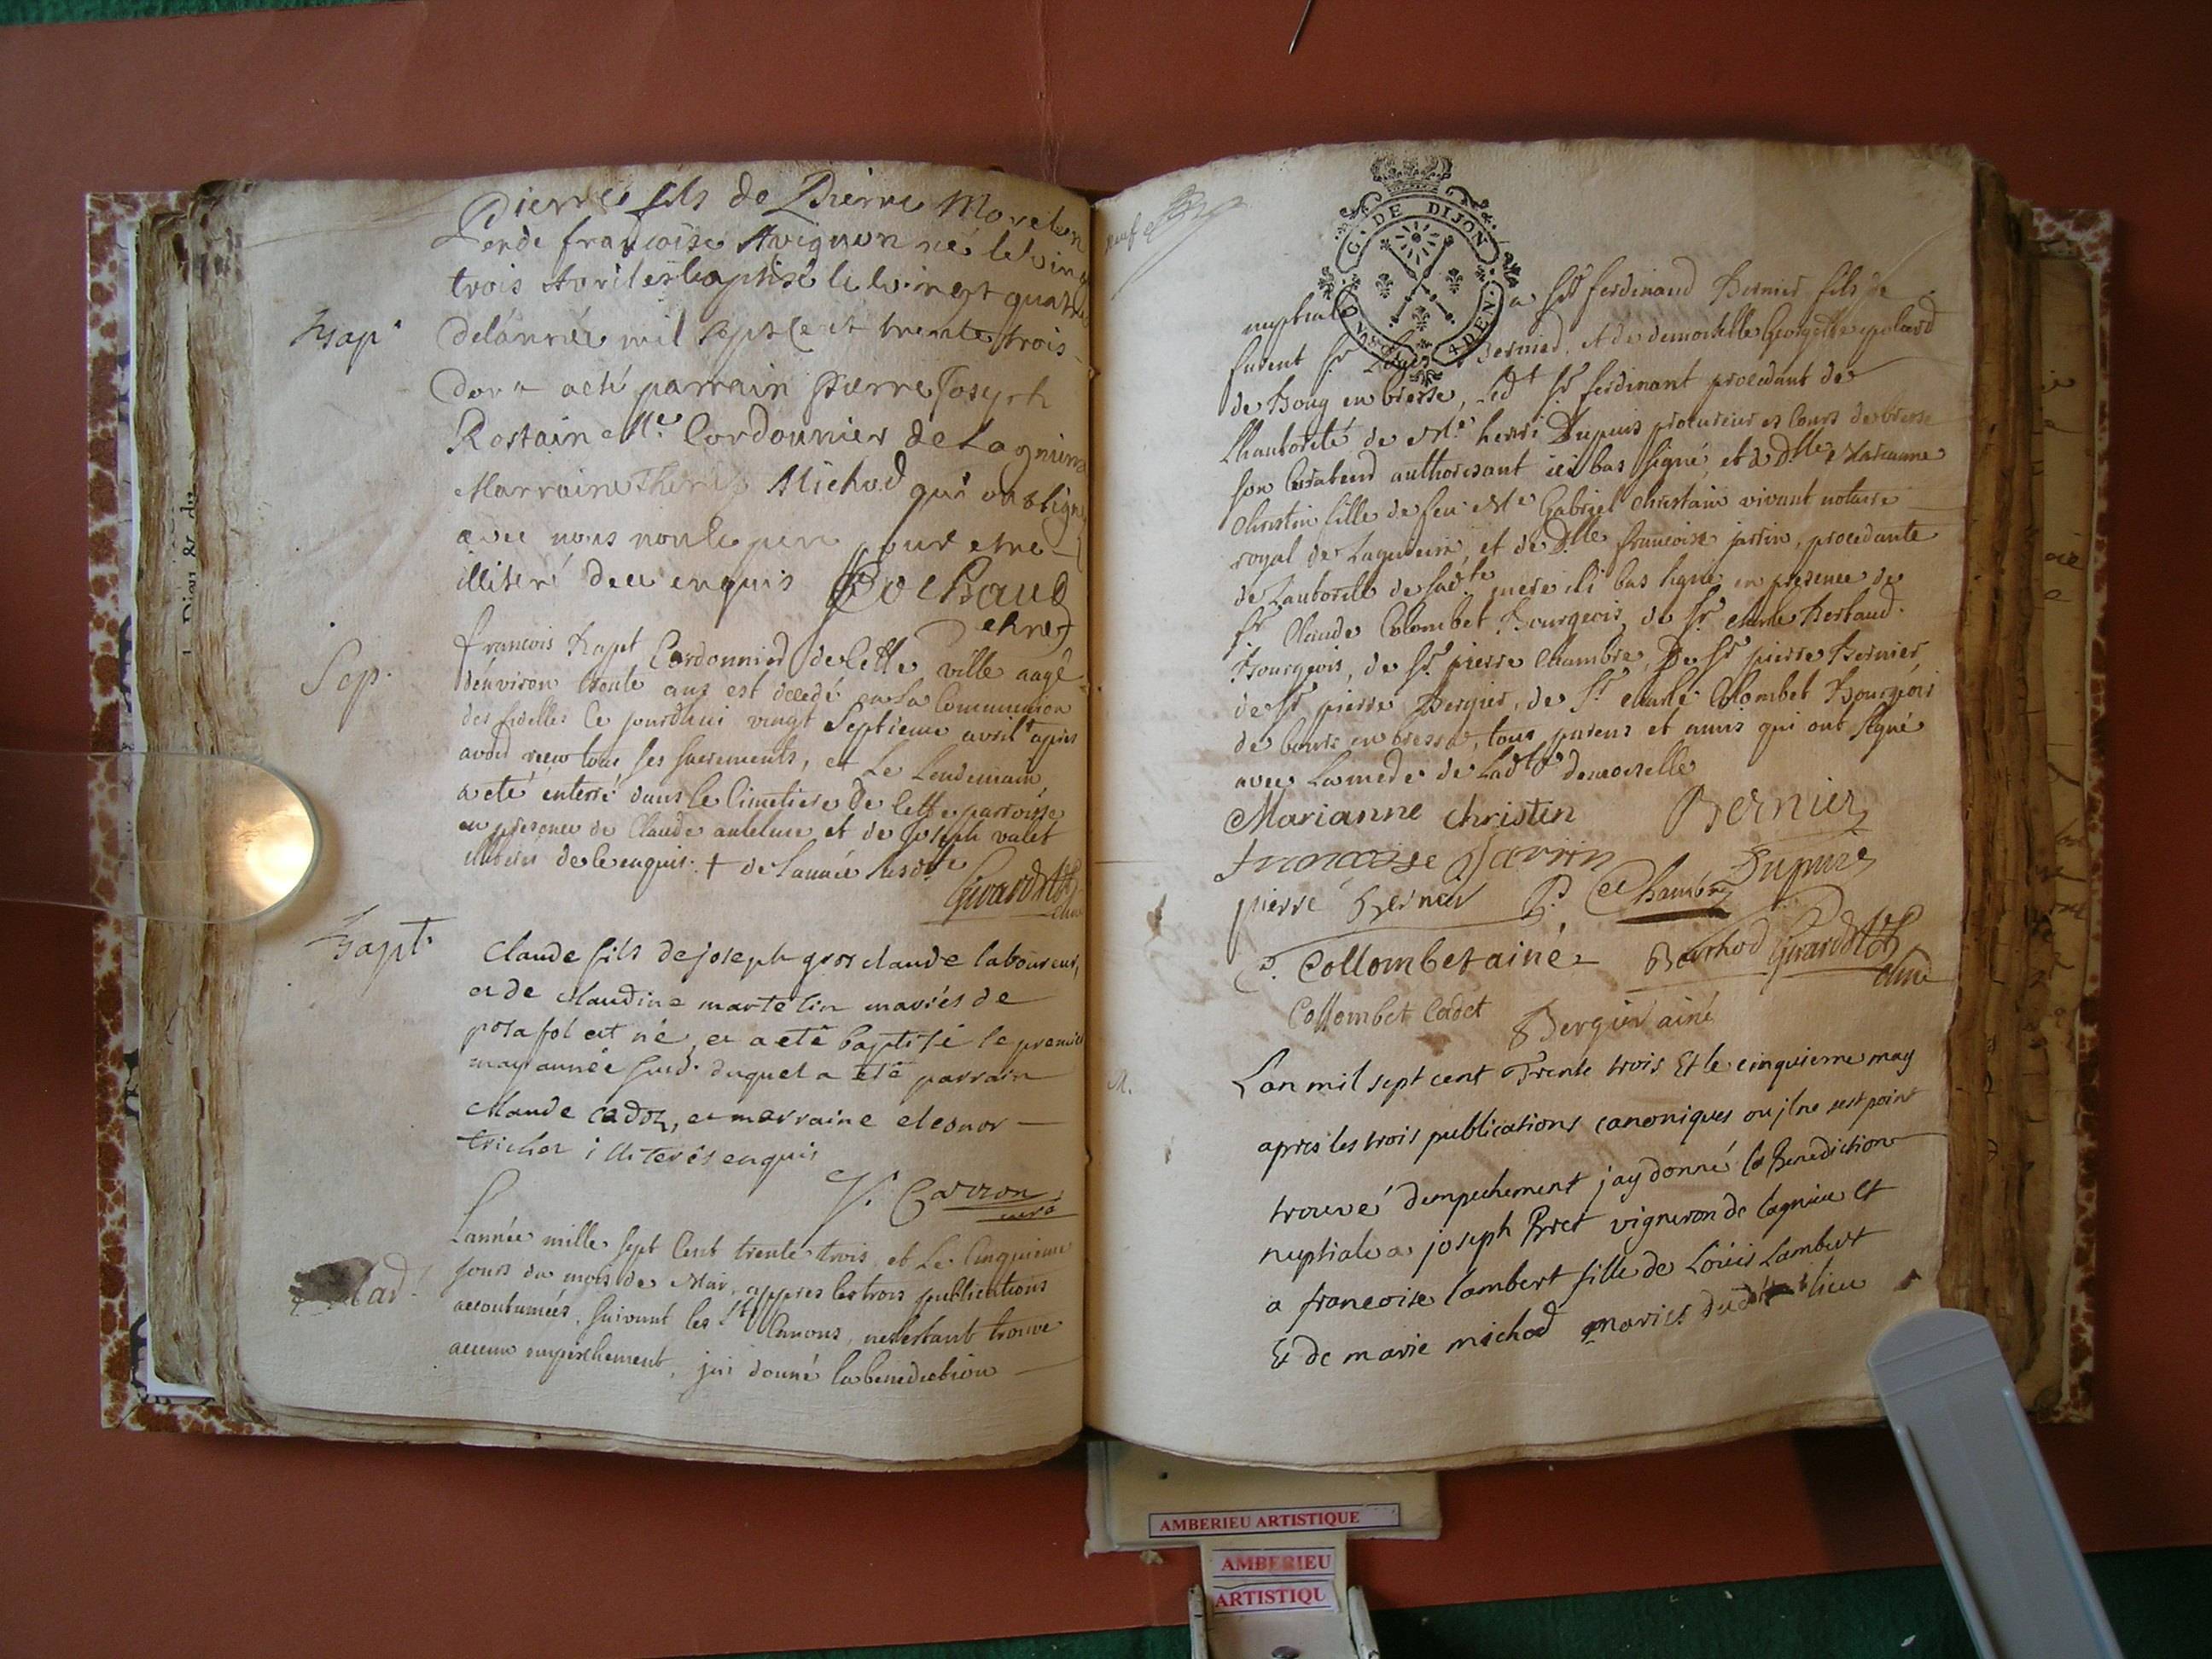 Pierre fils de Pierre Morelen
et de francoise Avignon né le vingt
trois Avril et baptisé le vingt quatre
Bap.
delánnée mil sept cent trente trois
dont a eté parrain pierre Joseph
Rostain Me. Cordonnier de Lagnieu
Marraine Michod qui ont signé
avec nous non le pere pour etre
illiteré de ce enquis
francois Cordonnier de Cette ville aagé
Sep.
dénviron trente ans est decedé en La Communion
des fidelles Ce jourdhui vingt Septieme avril † apres
avoir receu tous ses sacrements, et Le Lendemain
a eté enterré dans le Cimetiere de Cette parroisse
en presence de Claude antelme et de joseph valet
illiterés de ce enquis. † de lannée susdte
Girardot
Bapt.
Claude fils de joseph gros claude laboureur,
et de claudine martelin mariés de
posafol est né, et a eté baptisé le premier
may année susd. duquel a eté parrain
claude cadoz, et marraine eleonor
trichot illiterés enquis
V. Carron
curé
L'année mille sept Cent trente trois et Le Cinquieme
jours du mois de Mai, appres les trois publications
accoutumées, suivant les Sts Canons, ne s'estant trouve
aucun empeschement, jai donné la benediction
G. DE DIJON
4 DEN.
nuptiale a Sr. ferdinand Bernier fils de
furent Sr. Bernier, et de demoiselle Georgette
de Bourg en bresse, Ledt Sr. ferdinant procedant de
Lhautorité de Me. henri Dupuis procureur es Cours de bresse
son Curateur authorisant ici bas signé, et a Dlle Marianne
Christin fille de feu Me Gabriel Christain vivant notaire
royal de Lagnieu, et de Dlle francoise jarrin, procedante
de Lautorité de sadte mere ici bas signé en presence de
Sr. Claude Colombet Bourgeois, de Sr. Charle Bertaud
Bourgeois, de Sr. pierre Chambre, De Sr. pierre Bernier,
de Sr. pierre Bergier, de Sr. Charle Colombet Bourgeois
de bourg en bresse, tous parens et amis qui ont signé
avec La mere de Ladte demoiselle
Marianne christin Bernier
francoise Jarrin Dupuis
pierre Bernier P. Chambre
C. Collombet ainé Berthod Girardot
Collombet Cadet Bergier ainé
M.
L'an mil sept cent Trente trois Et le cinquieme may
apres les trois publications canoniques ou jl ne sest point
trouvé dempechement jay donné la Benediction
nuptiale a joseph Bret vigneron de lagnieu Et
a francoise lambert fille de Loüis Lambert
Et de marie michod mariés dudit lieu
AMBERIEU ARTISTIQUE
AMBERIEU
ARTISTIQU